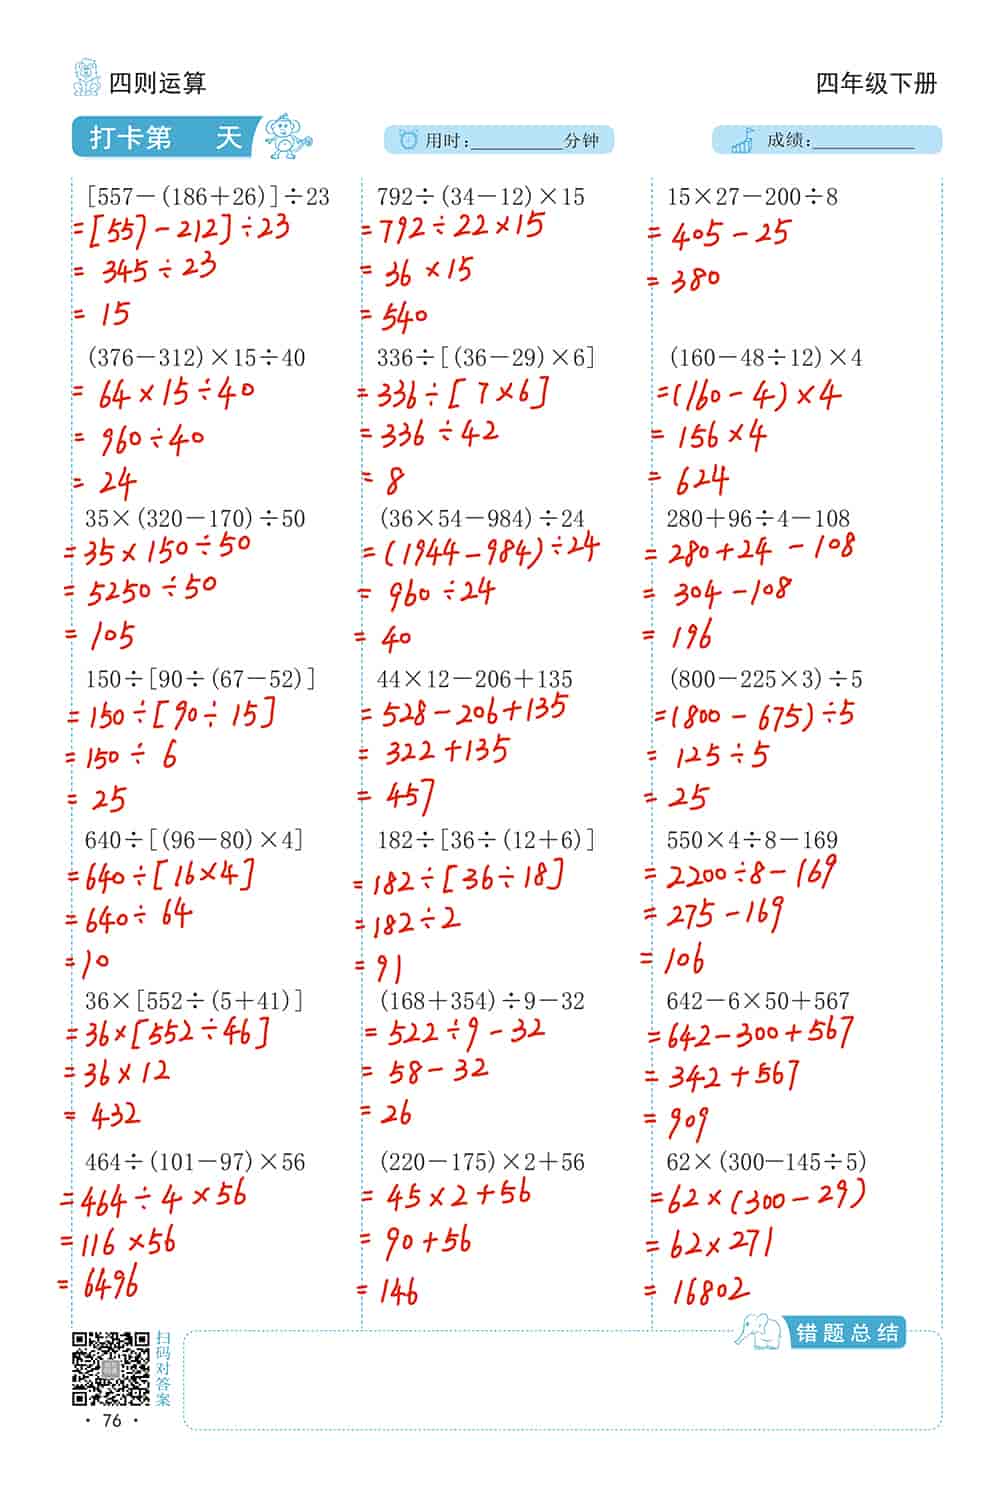 四则运算
四年级下册
打卡第 天
用时:__________分钟
成绩:___________
[557－(186＋26)]÷23
=[557-212]÷23
= 345÷23
= 15
792÷(34－12)×15
=792÷22×15
= 36×15
= 540
15×27－200÷8
= 405-25
= 380
(376－312)×15÷40
= 64×15÷40
= 960÷40
= 24
336÷[(36－29)×6]
=336÷[7×6]
=336÷42
= 8
(160－48÷12)×4
=(160-4)×4
= 156×4
= 624
35×(320－170)÷50
=35×150÷50
= 5250÷50
= 105
(36×54－984)÷24
=(1944-984)÷24
= 960÷24
= 40
280＋96÷4－108
= 280+24-108
= 304-108
= 196
150÷[90÷(67－52)]
=150÷[90÷15]
=150÷6
= 25
44×12－206＋135
= 528-206+135
= 322+135
= 457
(800－225×3)÷5
=(800-675)÷5
= 125÷5
= 25
640÷[(96－80)×4]
=640÷[16×4]
=640÷64
=10
182÷[36÷(12＋6)]
=182÷[36÷18]
=182÷2
= 91
550×4÷8－169
= 2200÷8-169
= 275-169
= 106
36×[552÷(5＋41)]
=36×[552÷46]
=36×12
= 432
(168＋354)÷9－32
= 522÷9-32
= 58-32
= 26
642－6×50＋567
=642-300+567
= 342+567
= 909
464÷(101－97)×56
=464÷4×56
=116×56
= 6496
(220－175)×2＋56
= 45×2+56
= 90+56
= 146
62×(300－145÷5)
=62×(300-29)
= 62×271
= 16802
错题总结
扫码对答案
· 76 ·